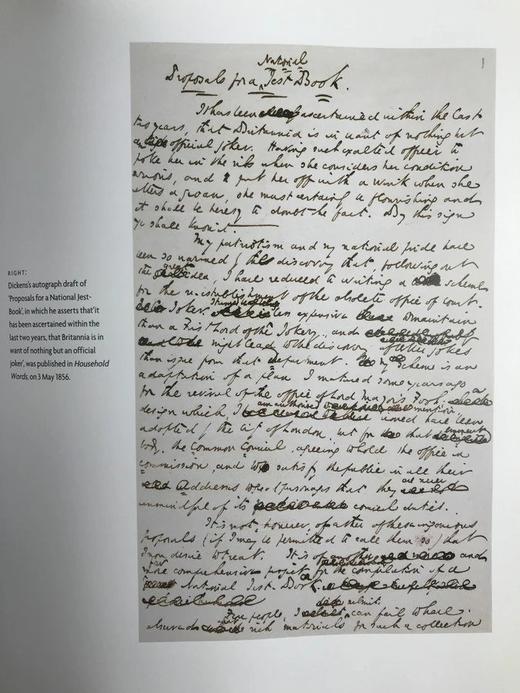 National
Proposals for a Jest-Book.
It has been ascertained within the last
two years, that Britannia is in want of nothing but
official joker. Having such exalted officer to
poke her in the ribs when she considers her condition
serious, and to put her off with a wink when she
utters a groan, she must certainly be flourishing and
it shall be heresy to doubt the fact. By this sign
ye shall know it.
My patriotism and my national pride have
been so warmed by the discovery that following out
the idea, I have reduced to writing a scheme
for the re-establishment of the obsolete office of court
Joker. less expensive to maintain
than a First Lord of the Jokery, and
might lead to the discovery of better jokes
than issue from that department. My scheme is an
adaptation of a plan I matured some years ago
for the revival of the office of Lord Mayor's Fool, a
design which, I am authorised to mention, would have been
adopted by the City of London, but for that eminent
body, the Common Council, agreeing to hold the office in
commission, and to satisfy the public in all their
Addresses to (perhaps that they are never
unmindful of its comic duties.
It is not, however, of either of these ingenious
proposals (if I may be permitted to call them so) that
I now desire to treat. It is of and
more comprehensive project for the compilation of a
National Jest-Book
Few people, I submit, can fail to
observe what rich materials for such a collection
RIGHT:
Dickens's autograph draft of
'Proposals for a National Jest-
Book', in which he asserts that 'it
has been ascertained within the
last two years, that Britannia is in
want of nothing but an official
joker', was published in Household
Words, on 3 May 1856.